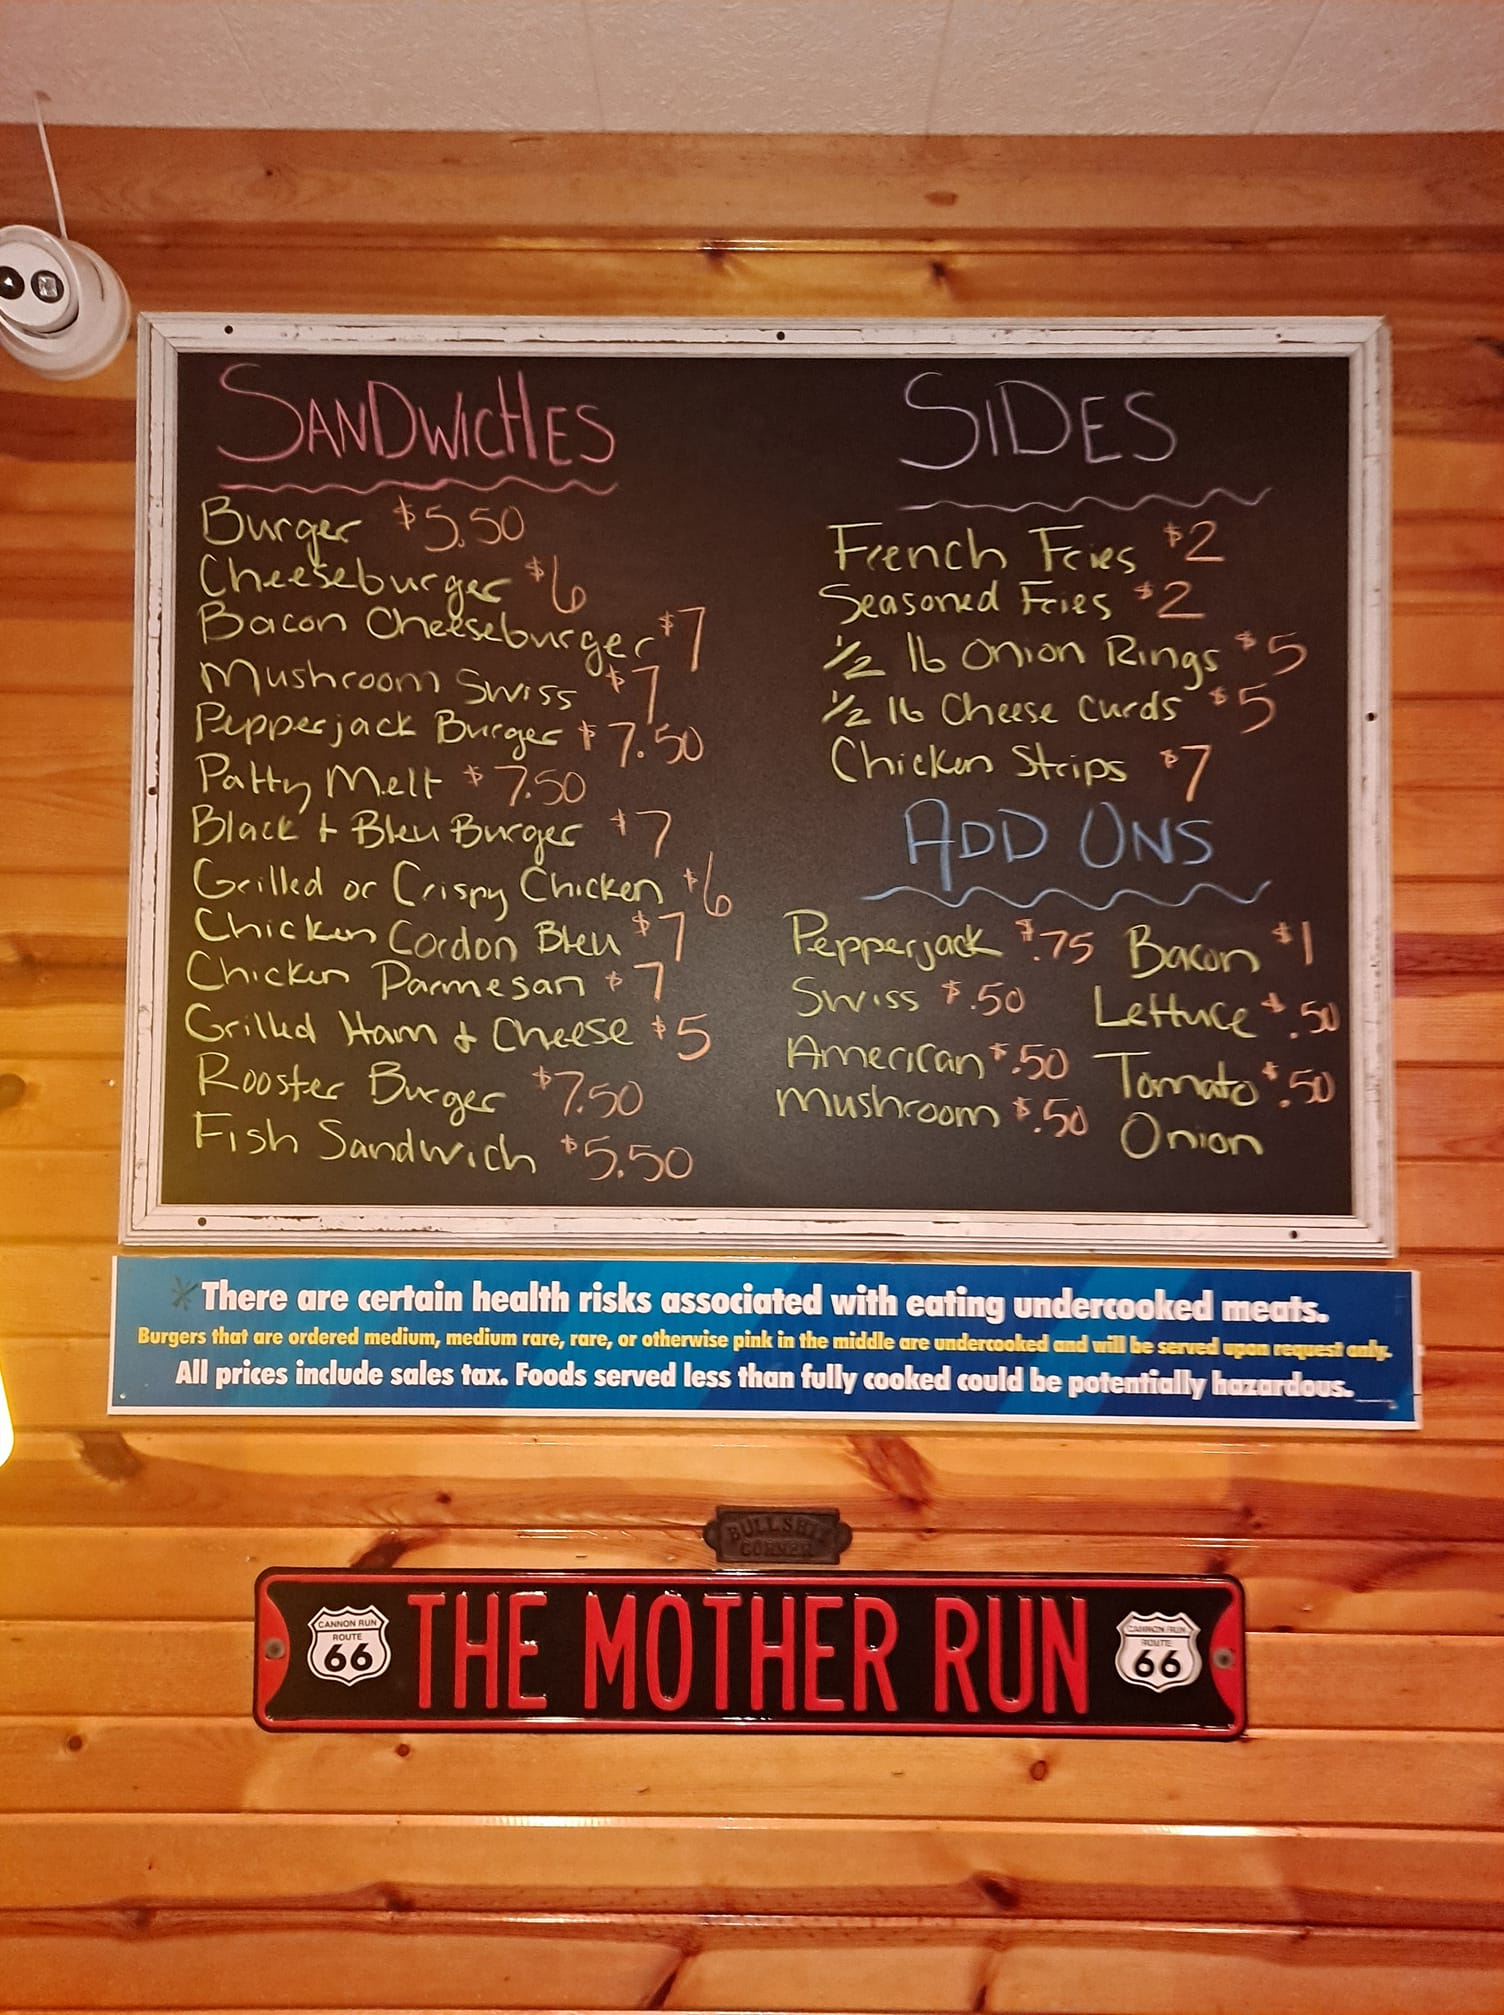 SANDWICHES
Burger $5.50
Cheeseburger $6
Bacon Cheeseburger $7
Mushroom Swiss $7
Pepperjack Burger $7.50
Patty Melt $7.50
Black + Bleu Burger $7
Grilled or Crispy Chicken $6
Chicken Cordon Bleu $7
Chicken Parmesan $7
Grilled Ham & Cheese $5
Rooster Burger $7.50
Fish Sandwich $5.50
SIDES
French Fries $2
Seasoned Fries $2
1/2 lb Onion Rings $5
1/2 lb Cheese Curds $5
Chicken Strips $7
ADD ONS
Pepperjack $.75
Swiss $.50
American $.50
Mushroom $.50
Bacon $1
Lettuce $.50
Tomato $.50
Onion
*There are certain health risks associated with eating undercooked meats.
Burgers that are ordered medium, medium rare, rare, or otherwise pink in the middle are undercooked and will be served upon request only.
All prices include sales tax. Foods served less than fully cooked could be potentially hazardous.
BULLSHIT
CORNER
CANNON RUN
ROUTE
66
THE MOTHER RUN
CANNON RUN
ROUTE
66